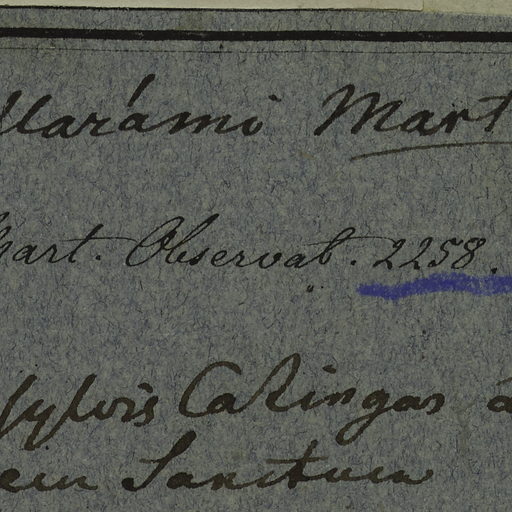 Marámi Mart
Mart. Observat. 2258.
Sylvis Catingas á
Sanctum